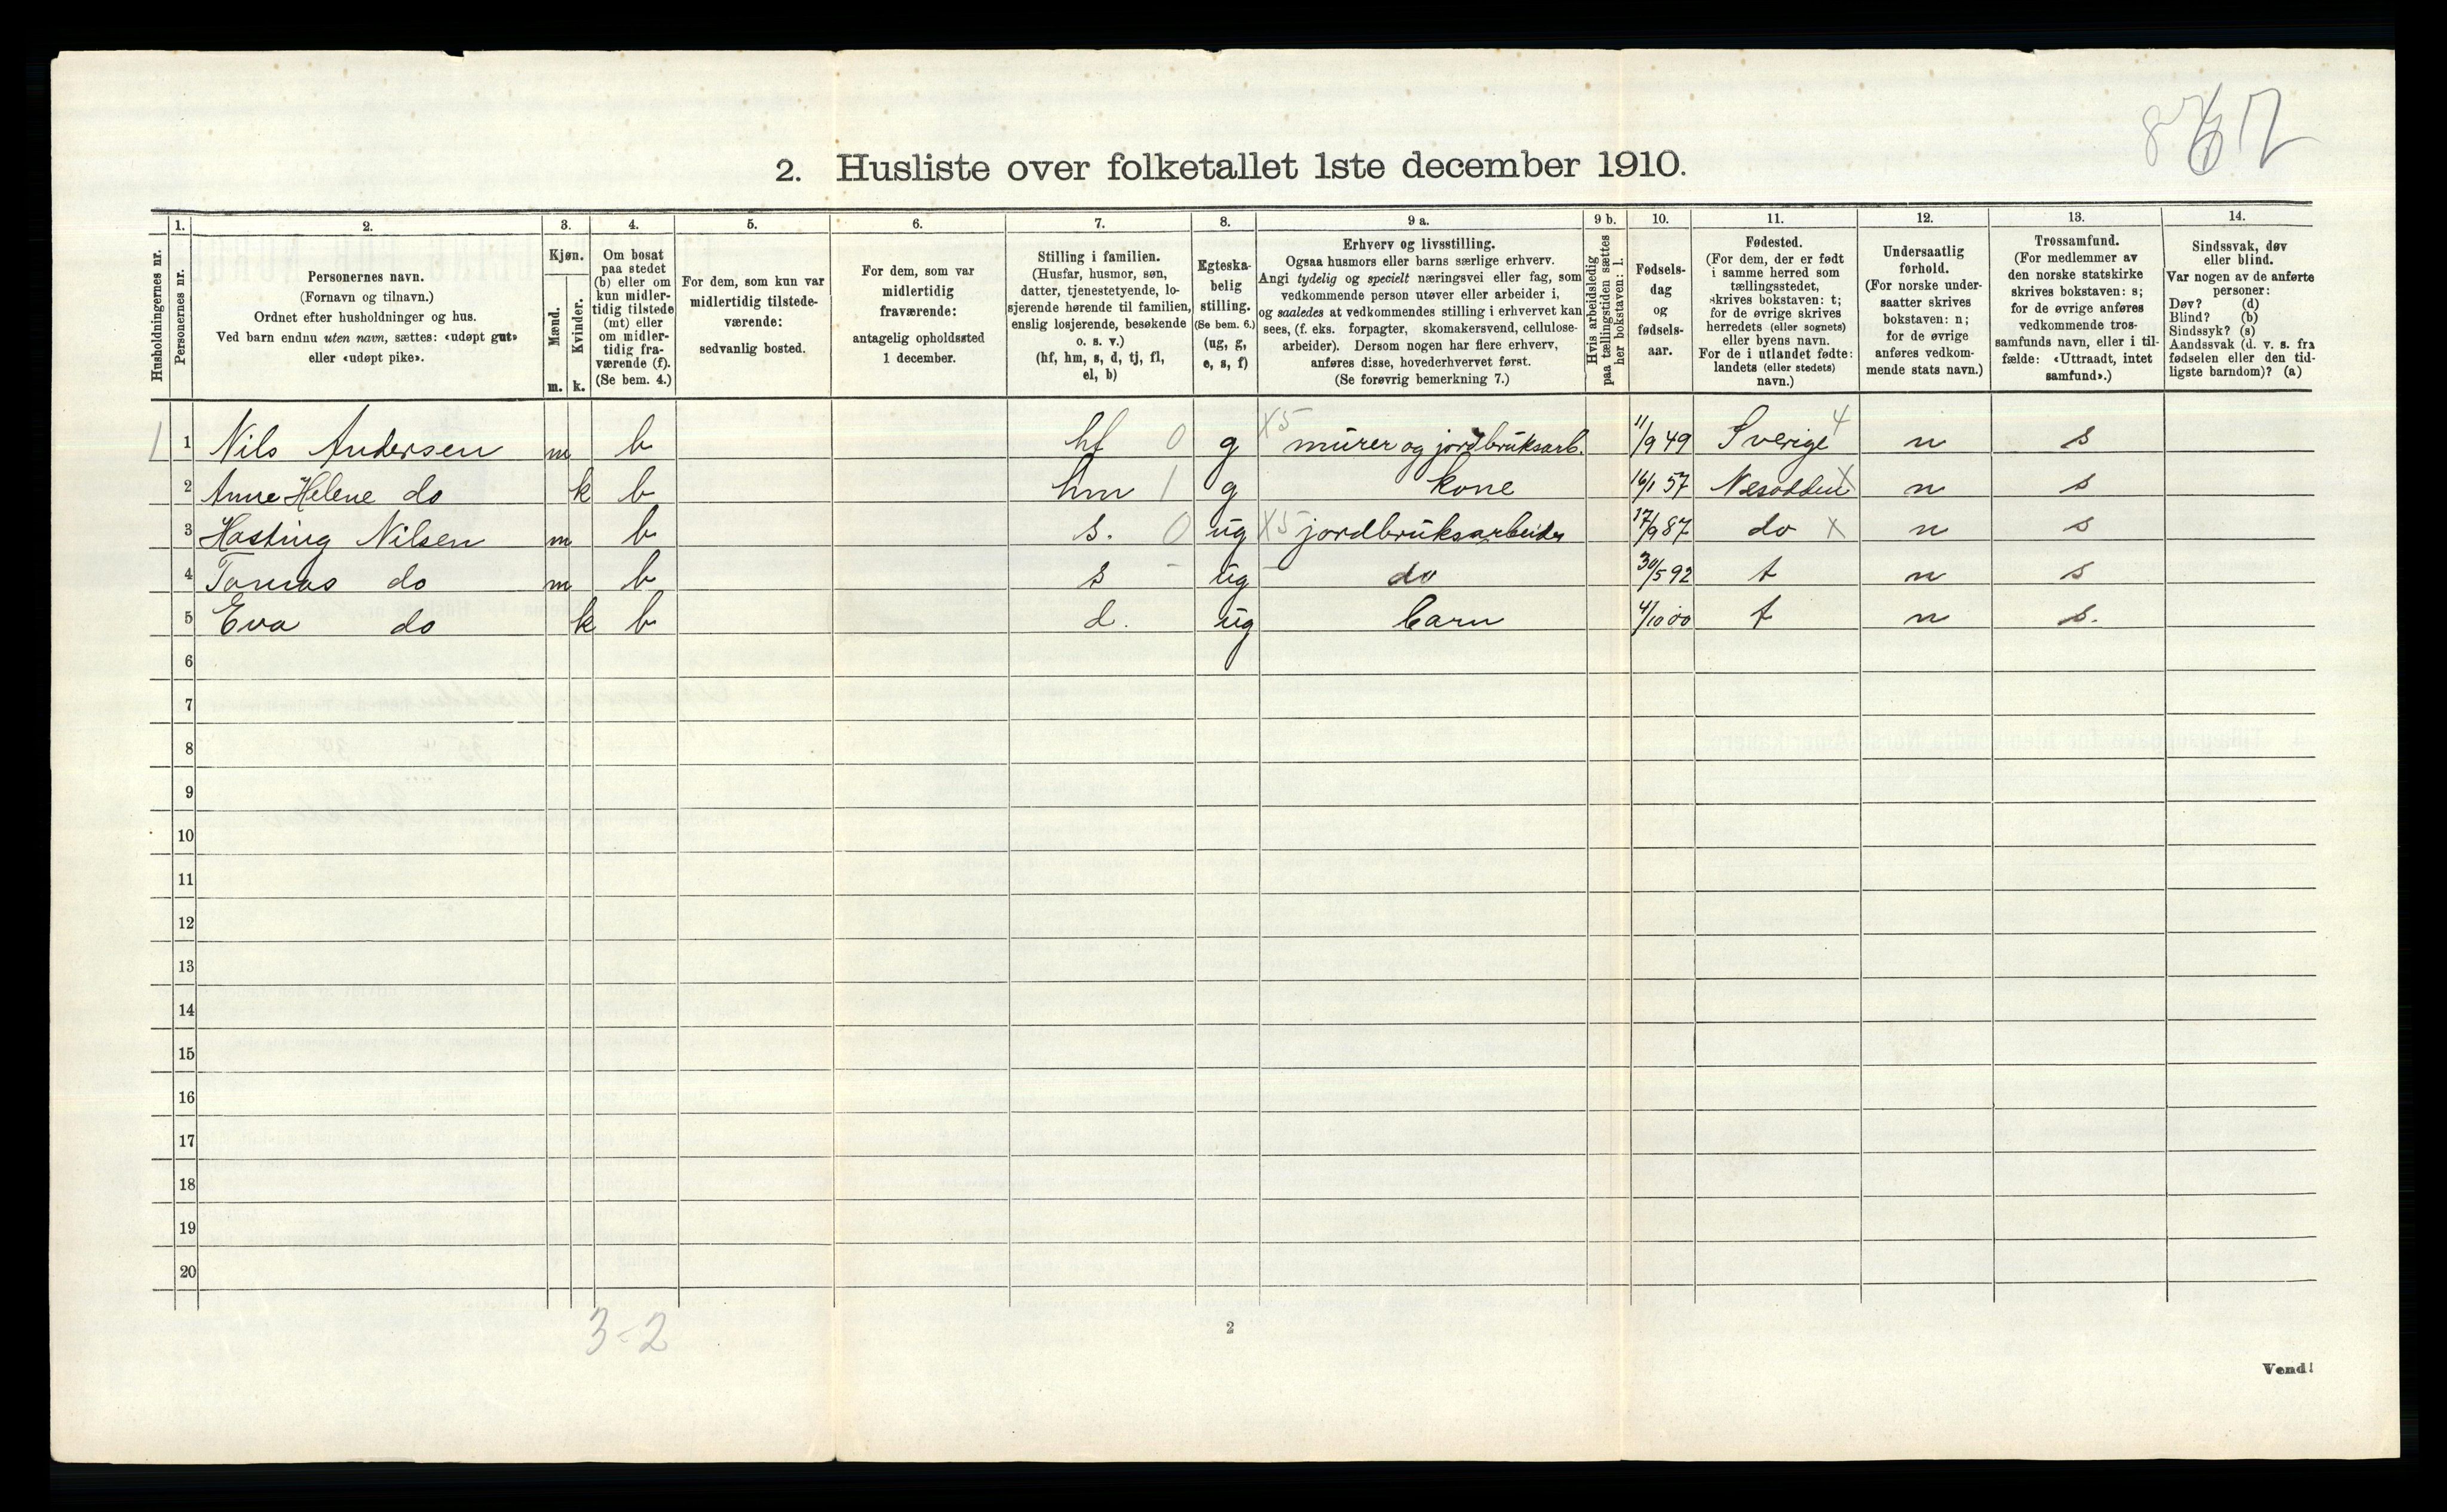 867
2. Husliste over folketallet 1ste december 1910.
Husholdningernes nr.
1.
Personernes nr.
2.
Personernes navn.
(Fornavn og tilnavn.)
Ordnet efter husholdninger og hus.
Ved barn endnu uten navn, sættes: «udøpt gut»
eller «udøpt pike».
3.
Kjøn.
Mænd.
Kvinder.
m. k.
4.
Om bosat
paa stedet
(b) eller om
kun midler-
tidig tilstede
(mt) eller
om midler-
tidig fra-
værende (f).
(Se bem. 4.)
5.
For dem, som kun var
midlertidig tilstede-
værende:
sedvanlig bosted.
6.
For dem, som var
midlertidig
fraværende:
antagelig opholdssted
1 december.
7.
Stilling i familien.
(Husfar, husmor, søn,
datter, tjenestetyende, lo-
sjerende hørende til familien,
enslig losjerende, besøkende
o. s. v.)
(hf, hm, s, d, tj, fl,
el, b)
8.
Egteska-
belig
stilling.
(Se bem. 6.)
(ug, g,
e, s, f)
9 a.
Erhverv og livsstilling.
Ogsaa husmors eller barns særlige erhverv.
Angi tydelig og specielt næringsvei eller fag, som
vedkommende person utøver eller arbeider i,
og saaledes at vedkommendes stilling i erhvervet kan
sees, (f. eks. forpagter, skomakersvend, cellulose-
arbeider). Dersom nogen har flere erhverv,
anføres disse, hovederhvervet først.
(Se forøvrig bemerkning 7.)
9 b.
Hvis arbeidsledig
paa tællingstiden sættes
her bokstaven: l.
10.
Fødsels-
dag
og
fødsels-
aar.
11.
Fødested.
(For dem, der er født
i samme herred som
tællingsstedet,
skrives bokstaven: t;
for de øvrige skrives
herredets (eller sognets)
eller byens navn.
For de i utlandet fødte:
landets (eller stedets)
navn.)
12.
Undersaatlig
forhold.
(For norske under-
saatter skrives
bokstaven: n;
for de øvrige
anføres vedkom-
mende stats navn.)
13.
Trossamfund.
(For medlemmer av
den norske statskirke
skrives bokstaven: s;
for de øvrige anføres
vedkommende tros-
samfunds navn, eller i til-
fælde: «Uttraadt, intet
samfund».)
14.
Sindssvak, døv
eller blind.
Var nogen av de anførte
personer:
Døv? (d)
Blind? (b)
Sindssyk? (s)
Aandssvak (d. v. s. fra
fødselen eller den tid-
ligste barndom)? (a)
1 1 Nils Andersen m b hf 0 g X5 murer og jordbruksarb. 11/9 49 Sverige 4 n s
2 Anne Helene do k b hm 1 g kone 16/1 57 Nesodden X n s
3 Hasting Nilsen m b s. 0 ug X5 jordbruksarbeider 17/9 87 do X n s
4 Tomas do m b s - ug - do 30/5 92 t n s
5 Eva do k b d. ug barn 4/10 00 t n s.
6
7
8
9
10
11
12
13
14
15
16
17
18
19
20
3-2
2
Vend!